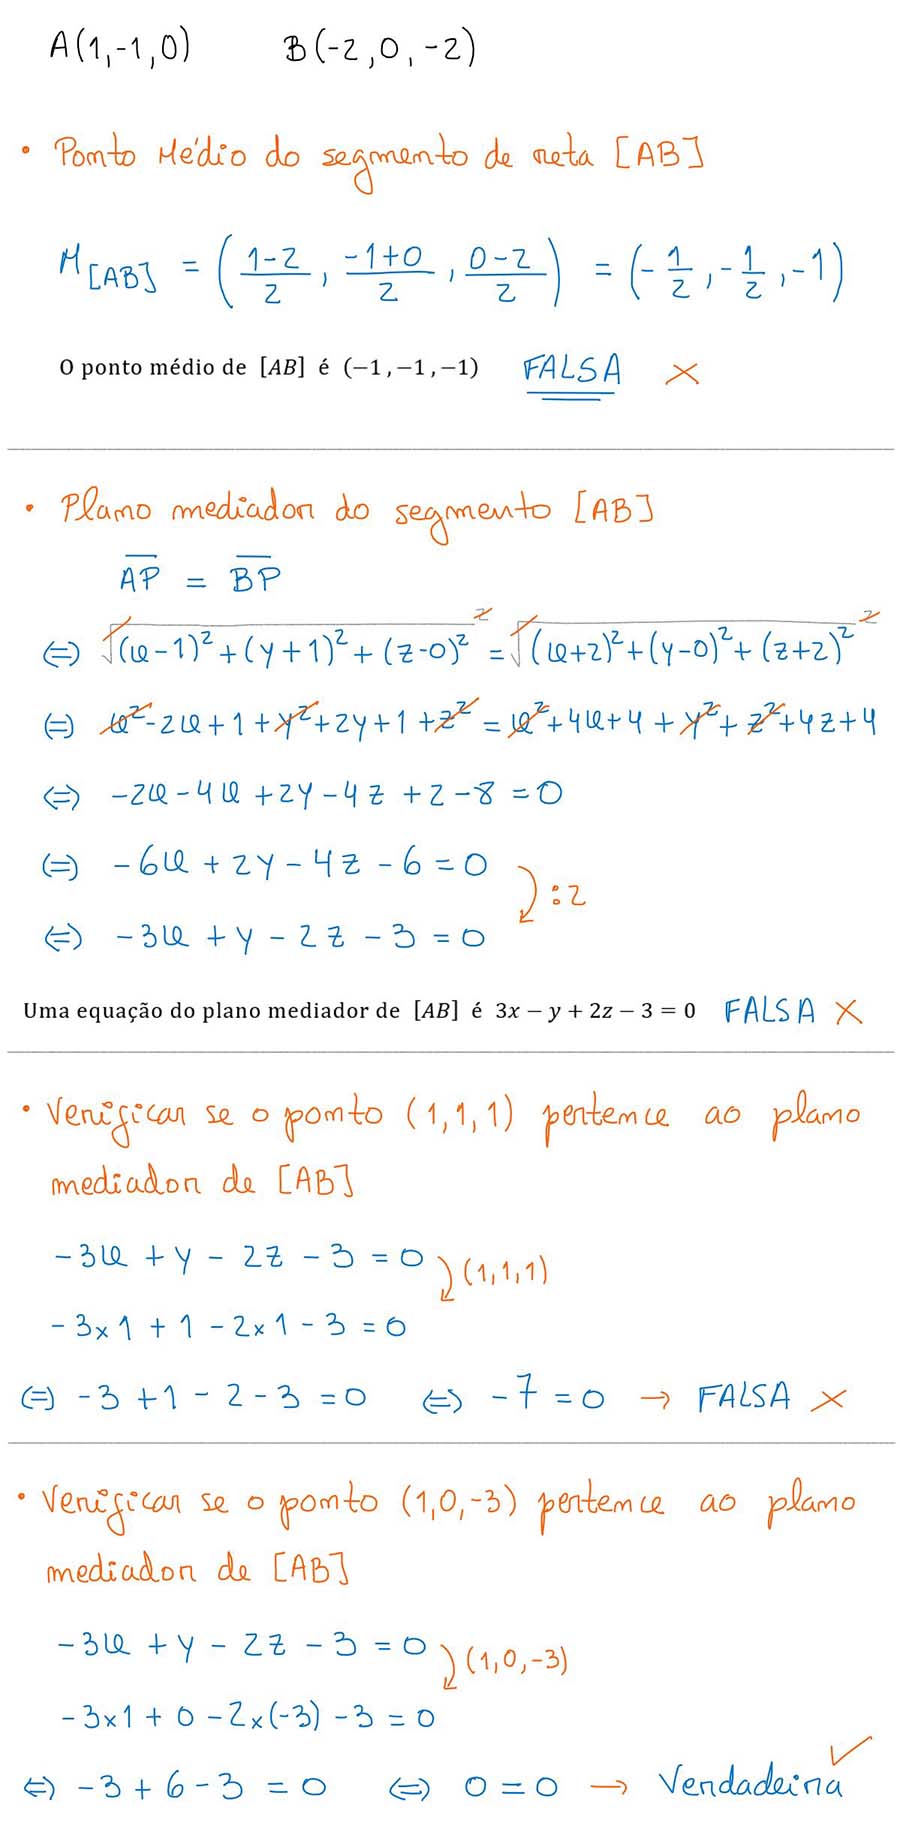 A(1,-1,0) B(-2,0,-2)
• Ponto Médio do segmento de reta [AB]
M[AB] = ( (1-2)/2 , (-1+0)/2 , (0-2)/2 ) = (-1/2 , -1/2 , -1)
O ponto médio de [AB] é (−1,−1,−1) FALSA ×
• Plano mediador do segmento [AB]
A̅P̅ = B̅P̅
⇔ √((x-1)²+(y+1)²+(z-0)²)² = √((x+2)²+(y-0)²+(z+2)²)²
⇔ x²-2x+1+y²+2y+1+z² = x²+4x+4+y²+z²+4z+4
⇔ -2x-4x+2y-4z+2-8=0
⇔ -6x+2y-4z-6=0
:2
⇔ -3x+y-2z-3=0
Uma equação do plano mediador de [AB] é 3x − y + 2z − 3 = 0 FALSA ×
• Verificar se o ponto (1,1,1) pertence ao plano
mediador de [AB]
-3x+y-2z-3=0 (1,1,1)
-3×1+1-2×1-3=0
⇔ -3+1-2-3=0 ⇔ -7=0 → FALSA ×
• Verificar se o ponto (1,0,-3) pertence ao plano
mediador de [AB]
-3x+y-2z-3=0 (1,0,-3)
-3×1+0-2×(-3)-3=0
⇔ -3+6-3=0 ⇔ 0=0 → Verdadeira ✓